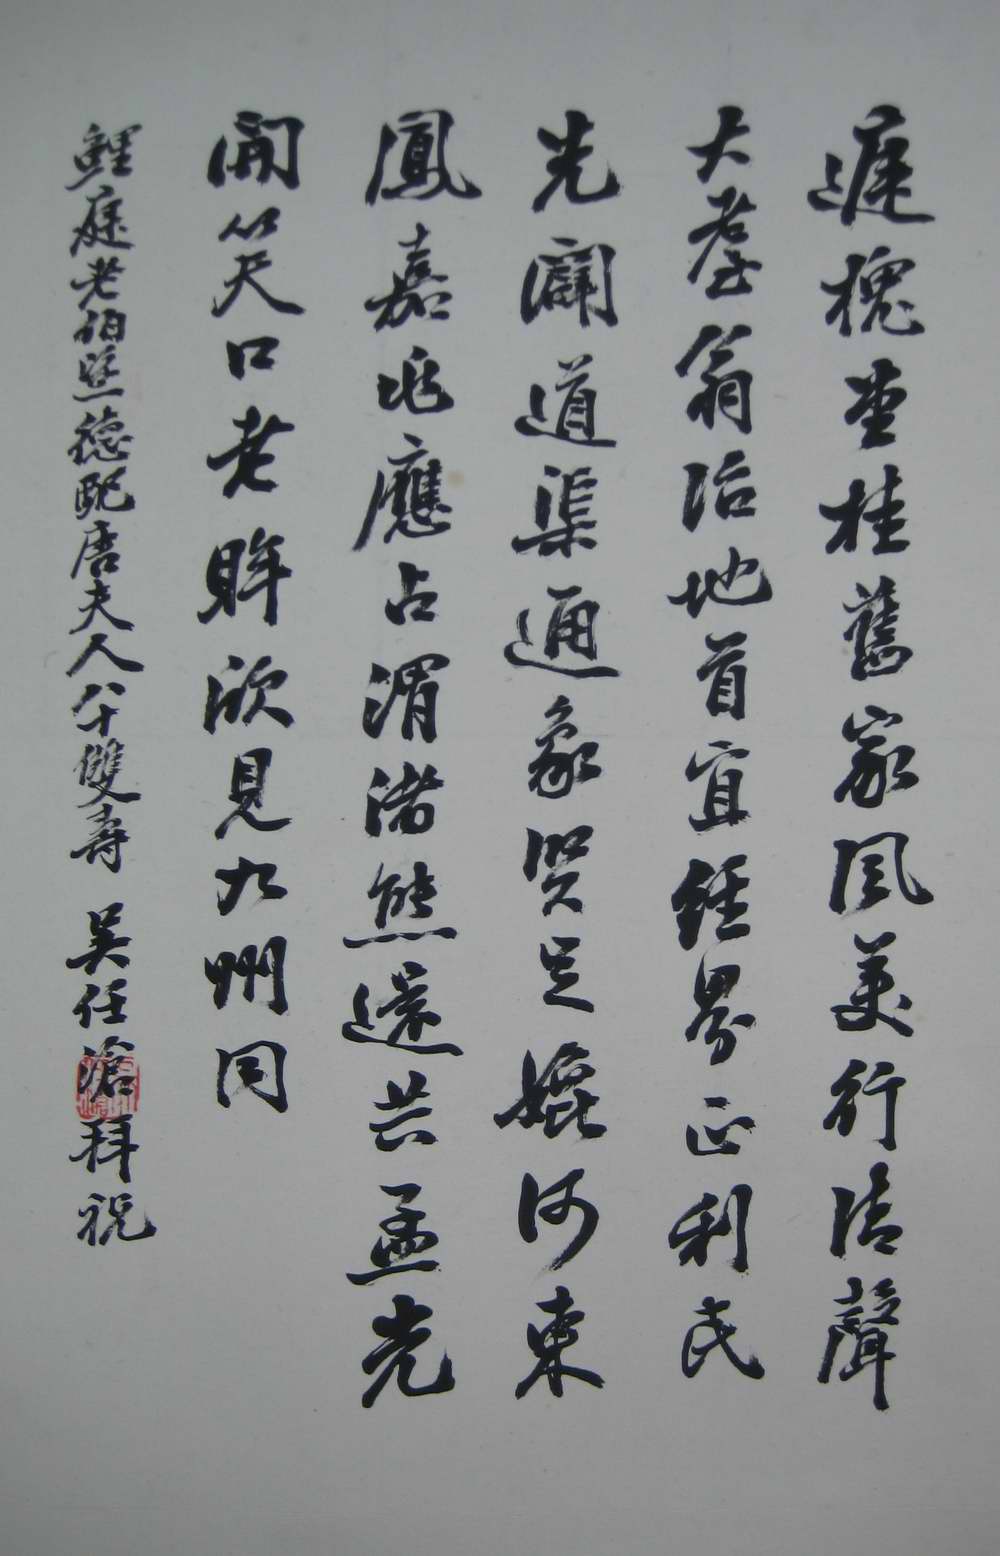 庭槐堂桂舊家風美行清聲
大耋翁治地首宜經界正利民
先闢道渠通象賢足媲河東
鳳嘉兆應占渭渚熊還共孟光
開笑口老眸欣見九州同
鯉庭老伯暨德配唐夫人八十雙壽 吳任滄拜祝